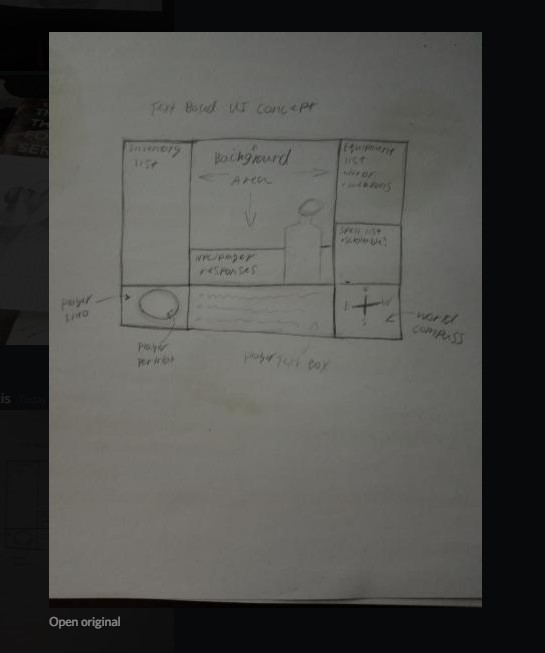 Text Based UI Concept
Inventory
list
Background
Area
Equipment
list
weapons
Spell list
NPC/Player
responses
player
info
player
portrait
player Text Box
world
compass
is
Open original